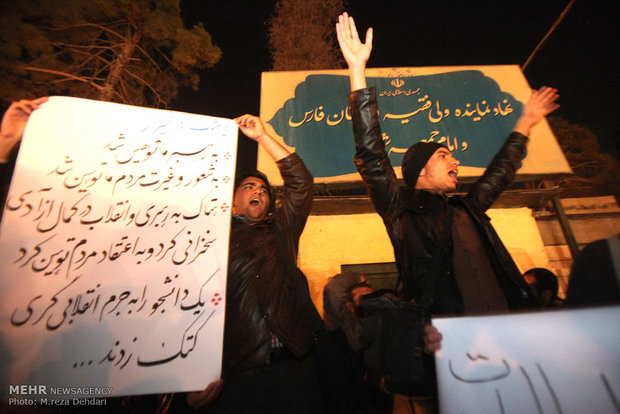 جمهوری اسلامی ایران
نهاد نماینده ولی فقیه ستان فارس
و امام جمعه
به رهبر ما توهین شد
به شعور و غیرت مردم ما توهین شد
هتاک به رهبری و انقلاب در کمال آزادی
سخنرانی کرد و به اعتقاد مردم توهین کرد
یک دانشجو را به جرم انقلابی گری
کتک زدند ...
MEHR NEWSAGENCY
Photo: M.reza Dehdari